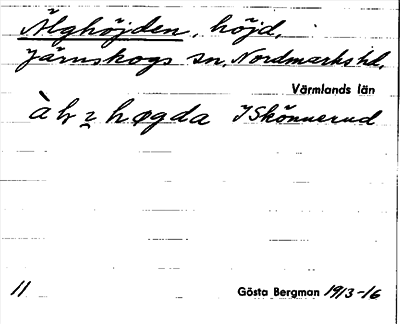 Älghöjden, höjd,
Järnskogs sn. Nordmarks hd.
Värmlands län
høgda I Skönnerud
11 Gösta Bergman 1913-16